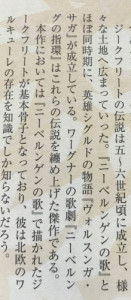 ジークフリートの伝説は五・六世紀頃に成立し、様
々な土地へ広まっていった。『ニーベルンゲンの歌』と
ほぼ同時期に、英雄シグルドの物語『ヴォルスンガ・
サガ』が成立している。ワーグナーの歌劇『ニーベルン
グの指環』はこれらの伝説を纏め上げた傑作である。
本作においては『ニーベルンゲンの歌』で描かれたジ
ークフリートが基本骨子となっており、彼は北欧のワ
ルキューレの存在を知識でしか知らないだろう。